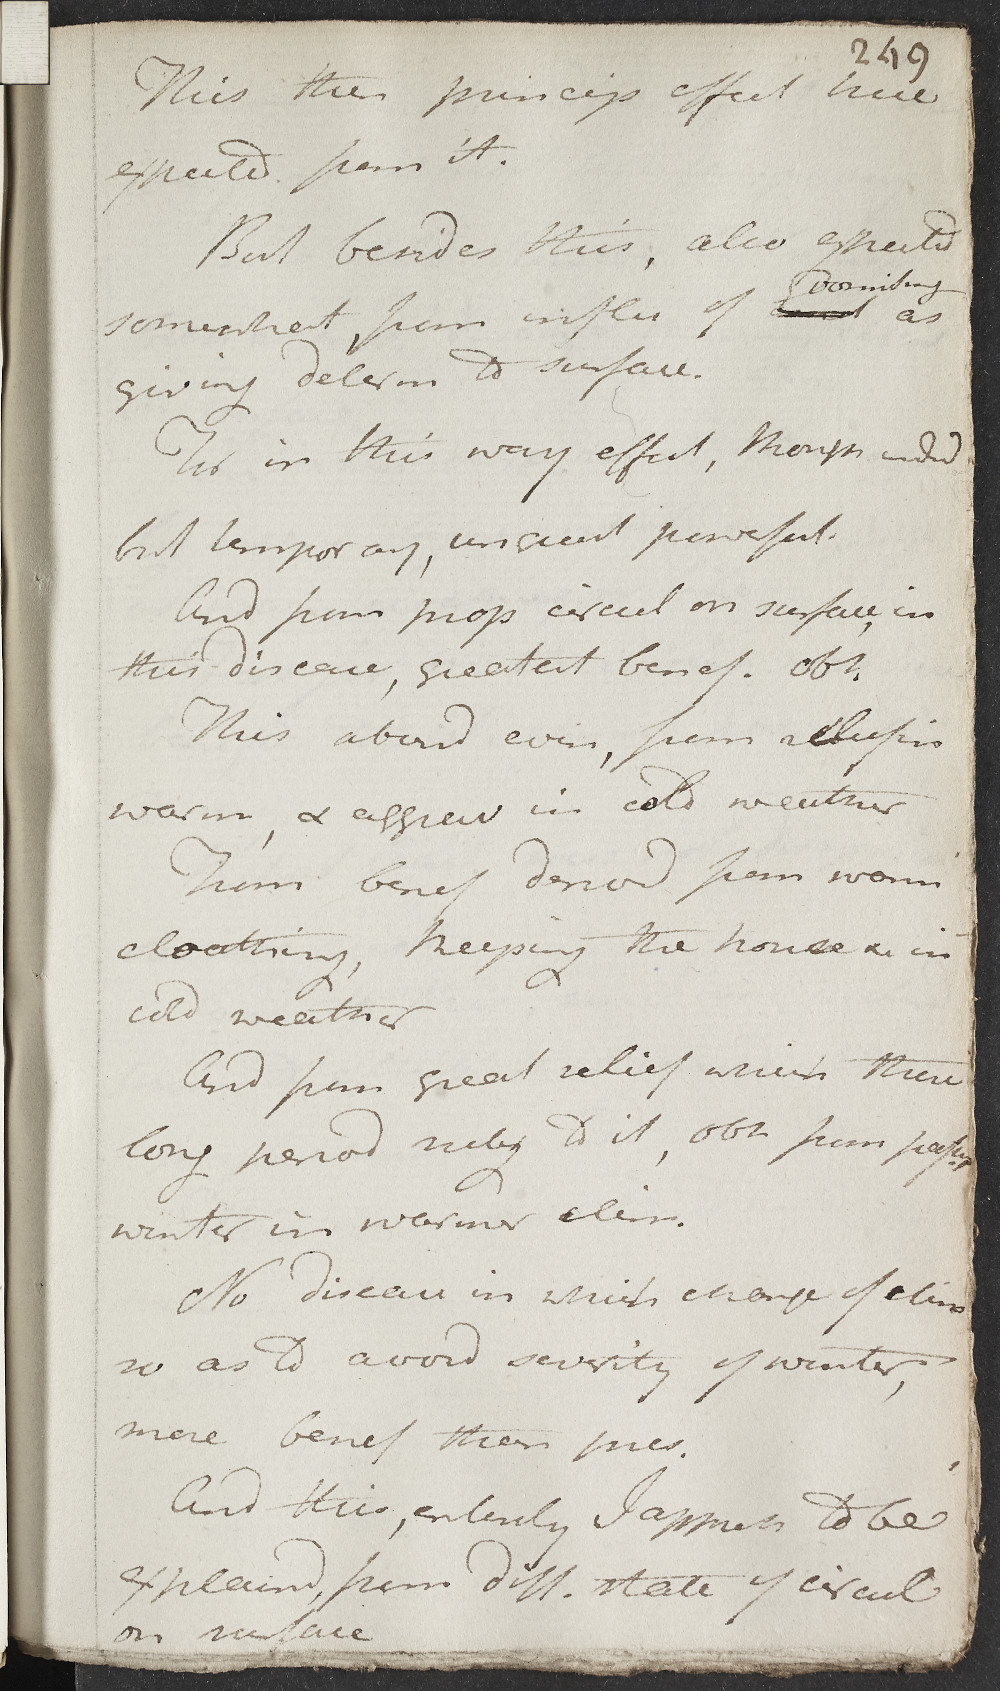 249
This then princip effect here
expected from it.
But besides this, also expected
vomiting
somewhat, from influ of as
giving determ to surface.
For in this way effect, though indeed
but temporary, unquest powerful.
And from prop circul on surface, in
this disease, greatest benef. obt.
This abund evin, from relapsin
warm, & aggrav in cold weather
From benef derivd from warm
cloathing, keeping the house &c in
cold weather
And from great relief which those
long period subj to it, obtn from passg
winter in warmer clim.
No disease in which change of clim
so as to avoid severity of winter,
more benef than pres.
And this, entirely I apprehs to be
explaind, from diff. state of circul
on surface